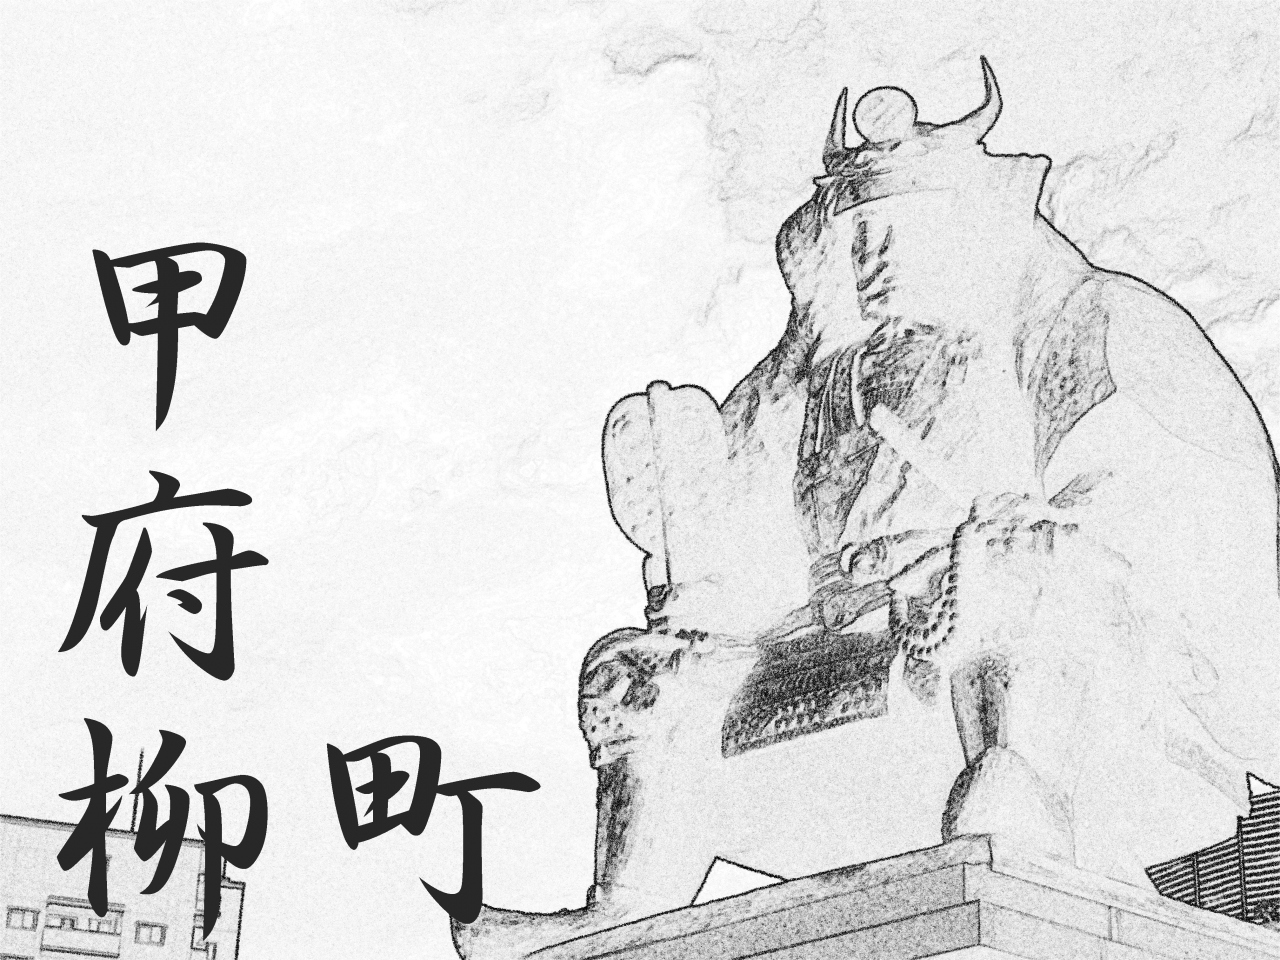 甲府
柳町